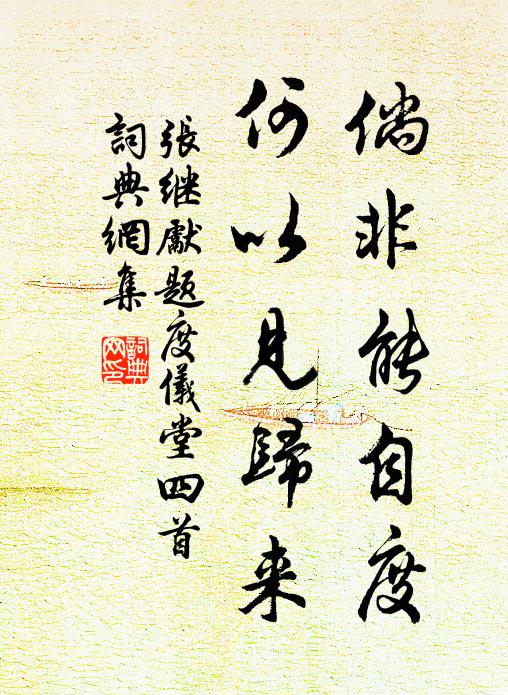 倘非能自度
何以見歸来
張继獻題度儀堂四首
詞典網集
詞典网印